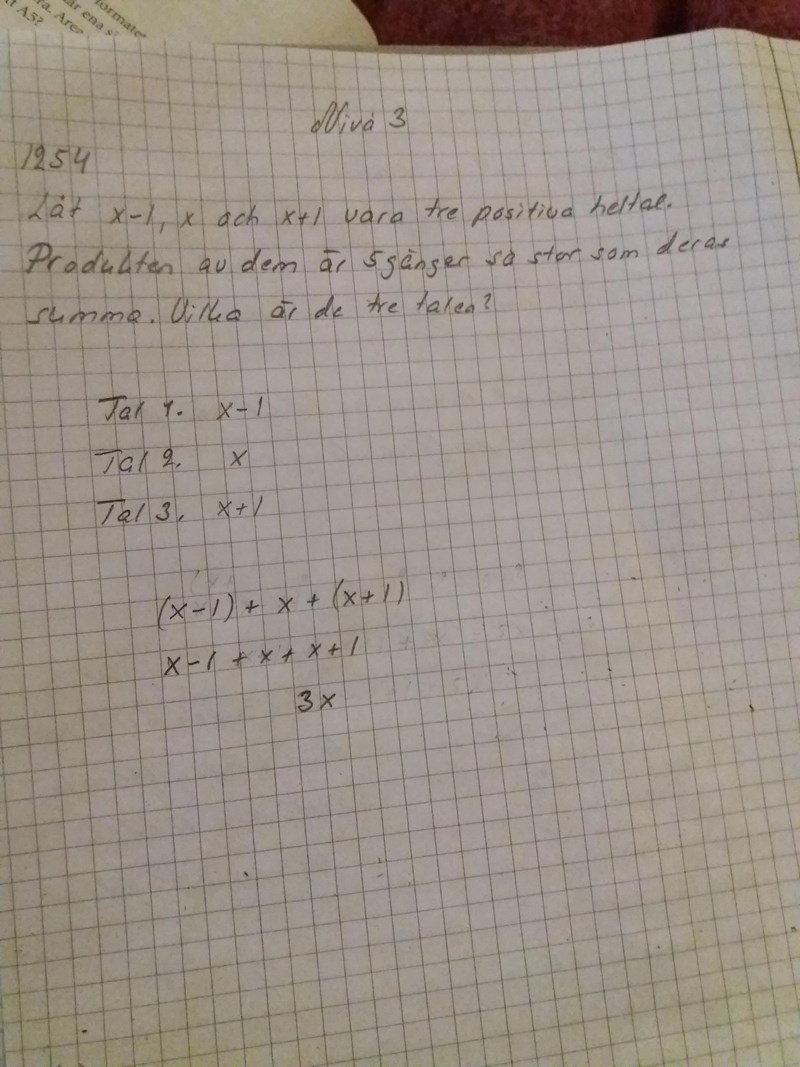 formate
är ena s
ra. Are
t A5?
Nivå 3
1254
Låt x-1, x och x+1 vara tre positiva heltal.
Produkten av dem är 5 gånger så stor som deras
summa. Vilka är de tre talen?
Tal 1. x-1
Tal 2. x
Tal 3. x+1
(x-1) + x + (x+1)
x-1 + x + x+1
3x